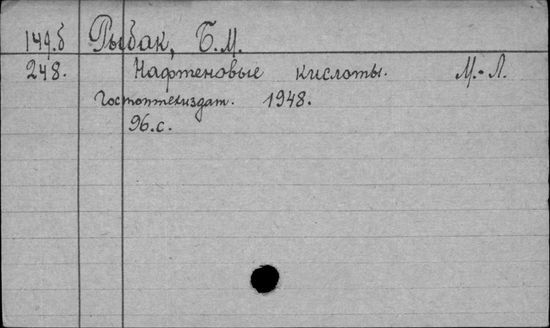 149.б Рыбак, Б.М.
248. Нафтеновые кислоты. М.-Л.
Гостоптехиздат. 1948.
96.с.